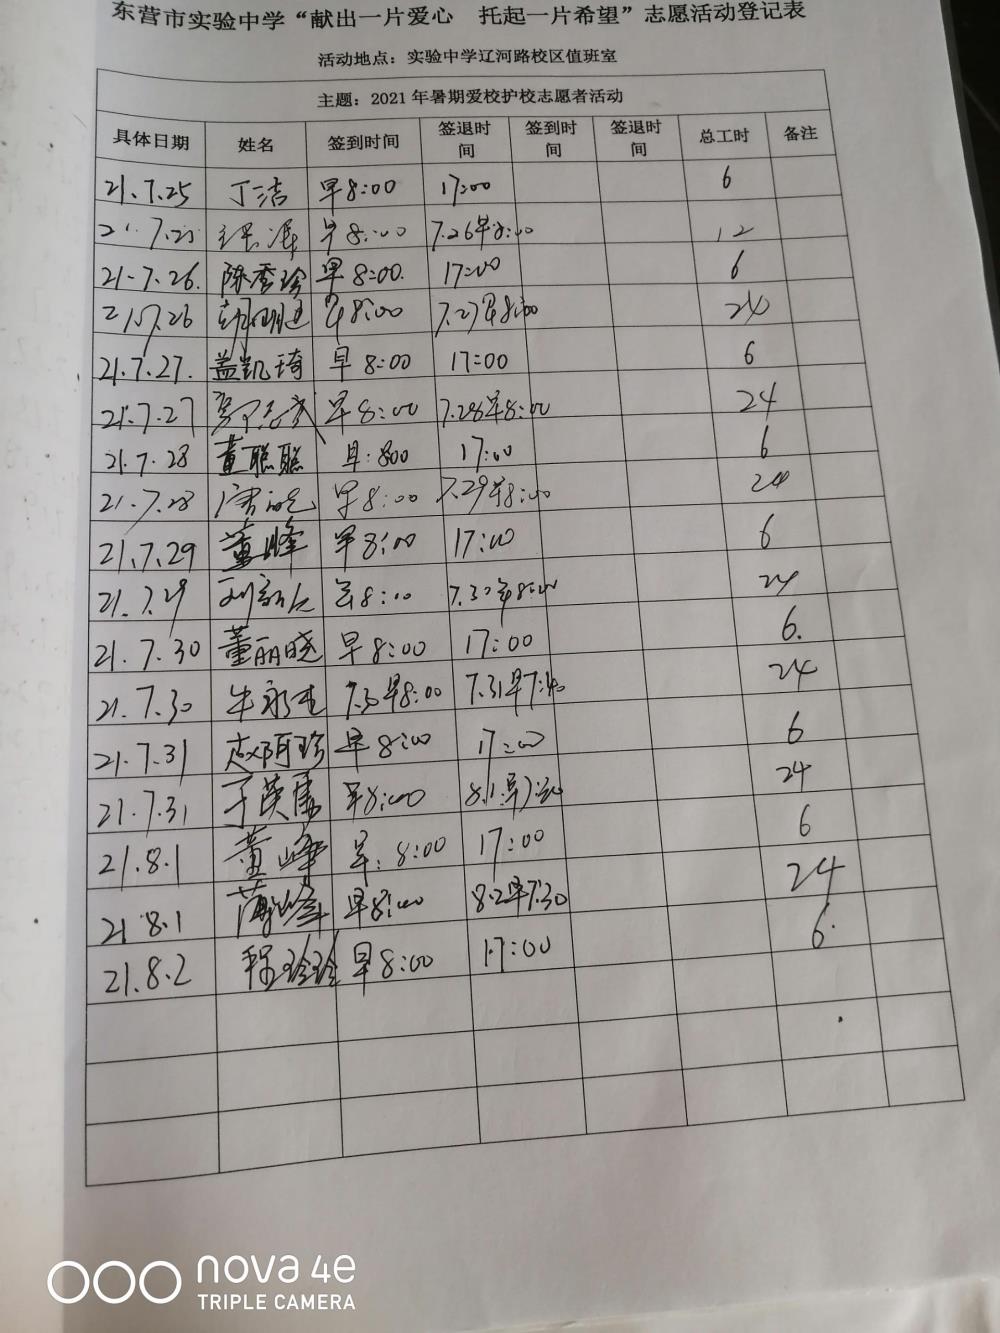 东营市实验中学“献出一片爱心 托起一片希望”志愿活动登记表
活动地点：实验中学辽河路校区值班室
主题：2021年暑期爱校护校志愿者活动
具体日期 姓名 签到时间 签退时间 签到时间 签退时间 总工时 备注
21.7.25 丁洁 早8:00 17:00 6
21.7.25 早8:00 7.26早8:00 12
21.7.26. 陈秀珍 早8:00. 17:00 6
21.7.26 早8:00 7.27早8:00 24
21.7.27. 盖凯琦 早8:00 17:00 6
21.7.27 早8:00 7.28早8:00 24
21.7.28 董聪聪 早:800 17:00 6
21.7.28 早8:00 7.29早8:00 24
21.7.29 董峰 早8:00 17:00 6
21.7.29 早8:00 7.30早8:00 24
21.7.30 董丽晓 早8:00 17:00 6.
21.7.30 7.30早8:00 7.31早7:40 24
21.7.31 赵阿珍 早8:00 17:00 6
21.7.31 早8:00 24
21.8.1 董峰 早:8:00 17:00 6
21.8.1 薄峰 早8:00 8.2早7:30 24
21.8.2 程玲玲 早8:00 17:00 6.
nova 4e
TRIPLE CAMERA